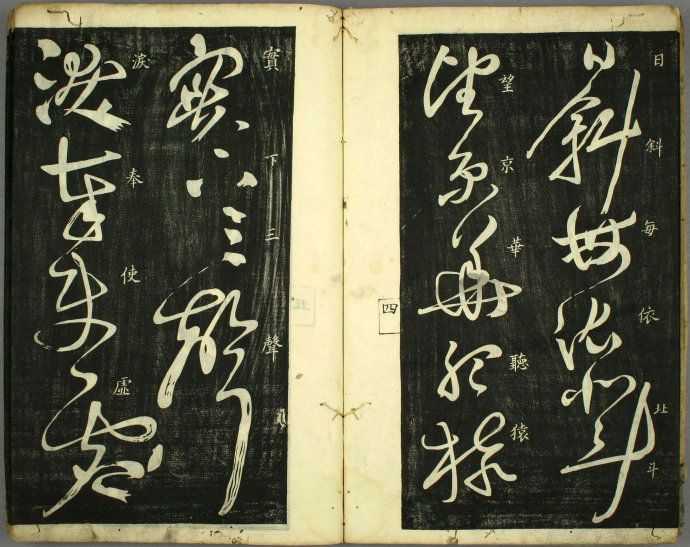 日斜每依北斗
望京華聽猿
四
實下三聲
淚奉使虛